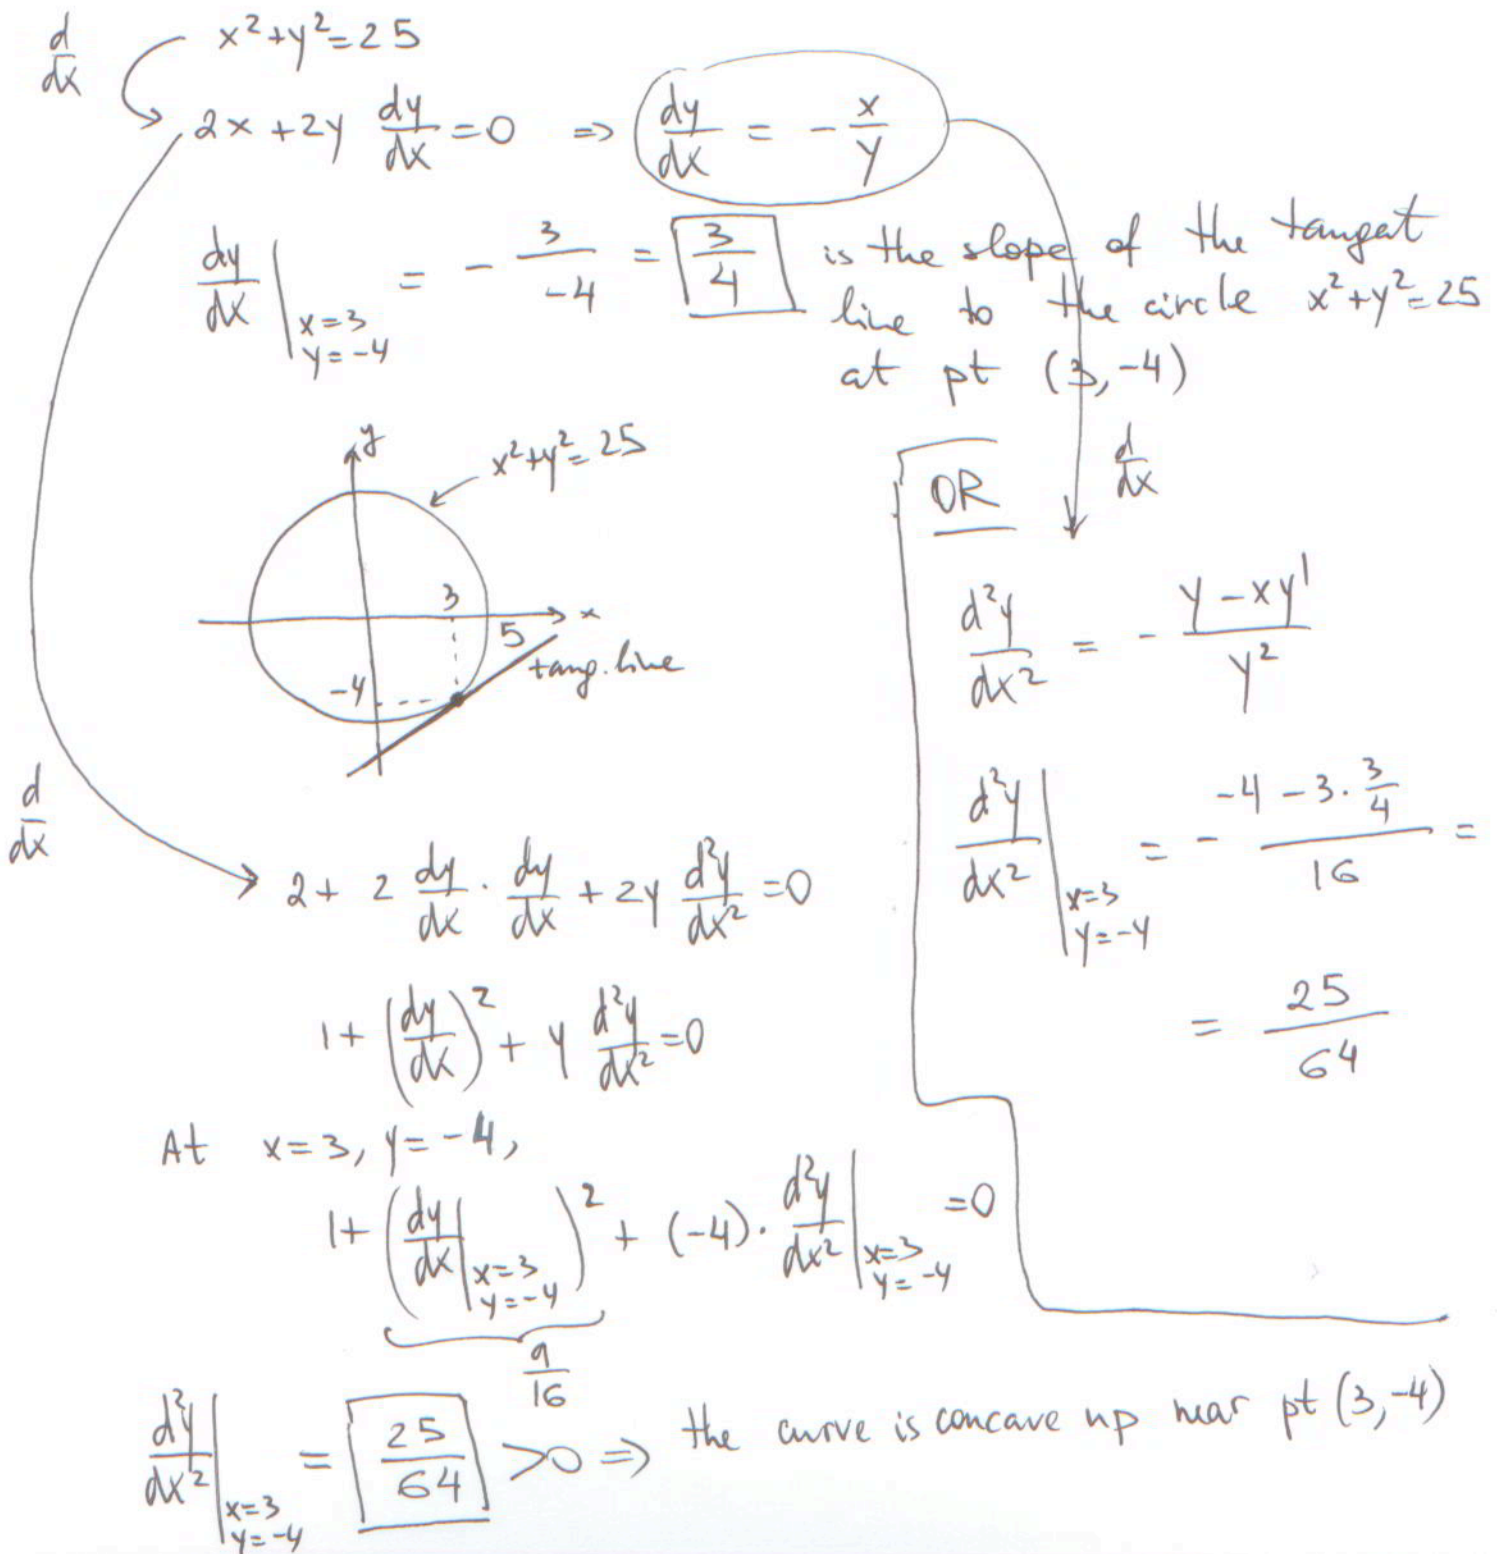 d/dx
x²+y²=25
2x + 2y dy/dx = 0 ⇒ dy/dx = - x/y
dy/dx |x=3 y=-4 = - 3/-4 = 3/4 is the slope of the tangent
line to the circle x²+y²=25
at pt (3,-4)
y
x²+y²=25
3
x
5
-4
tang. line
d/dx
2 + 2 dy/dx · dy/dx + 2y d²y/dx² = 0
1 + (dy/dx)² + y d²y/dx² = 0
At x=3, y=-4,
1 + (dy/dx |x=3 y=-4)² + (-4) · d²y/dx² |x=3 y=-4 = 0
9/16
d²y/dx² |x=3 y=-4 = 25/64 >0 ⇒ the curve is concave up near pt (3,-4)
OR
d/dx
d²y/dx² = - y - xy'/y²
d²y/dx² |x=3 y=-4 = - -4 - 3 · 3/4/16 =
= 25/64